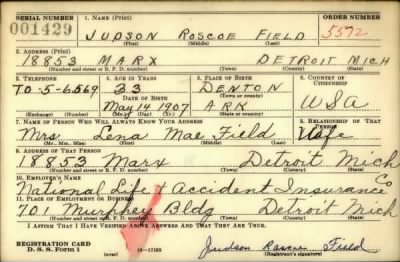 SERIAL NUMBER 1. NAME (Print) ORDER NUMBER
001429 JUDSON ROSCOE FIELD 5572
(First) (Middle) (Last)
2. ADDRESS (Print)
18853 MARX DETROIT MICH
(Number and street or R. F. D. number) (Town) (County) (State)
3. TELEPHONE 4. AGE IN YEARS 5. PLACE OF BIRTH 6. COUNTRY OF CITIZENSHIP
TO-5-6569 33 DENTON
DATE OF BIRTH (Town or county) USA
May 14 1907 ARK
(Exchange) (Number) (Mo.) (Day) (Yr.) (State or country)
7. NAME OF PERSON WHO WILL ALWAYS KNOW YOUR ADDRESS 8. RELATIONSHIP OF THAT PERSON
Mrs Lena Mae Field Wife
(Mr., Mrs., Miss) (First) (Middle) (Last)
9. ADDRESS OF THAT PERSON
18853 Marx Detroit Mich
(Number and street or R. F. D. number) (Town) (County) (State)
10. EMPLOYER'S NAME
National Life & Accident Insurance Co
11. PLACE OF EMPLOYMENT OR BUSINESS
701 Murphey Bldg Detroit Mich
(Number and street or R. F. D. number) (Town) (County) (State)
I AFFIRM THAT I HAVE VERIFIED ABOVE ANSWERS AND THAT THEY ARE TRUE.
REGISTRATION CARD
D. S. S. Form 1 (over) 16-17105 Judson Roscoe Field
(Registrant's signature)